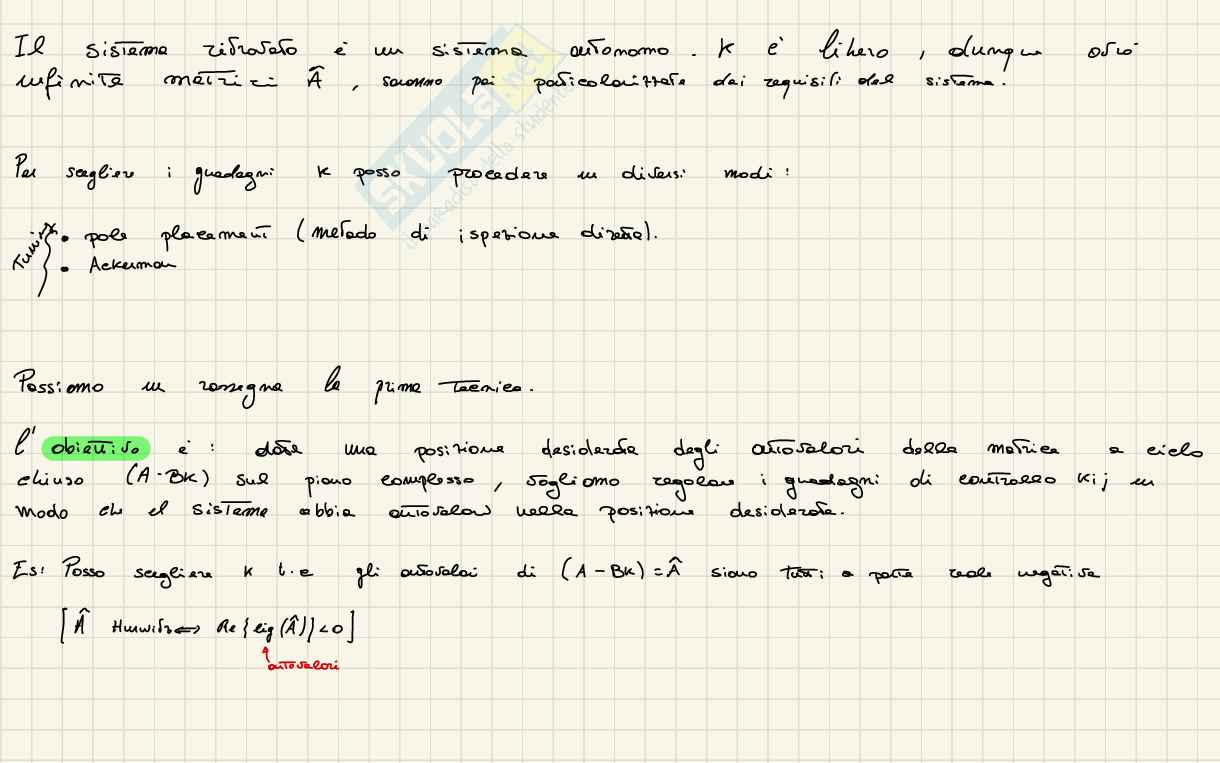 Il sistema ritrovato è un sistema autonomo. K è libero, dunque avrò
infinite matrici Â, saranno poi particolarizzate dai requisiti del sistema.
SKUOLA.net
Per scegliere i guadagni K posso procedere in diversi modi:
• pole placement (metodo di ispezione diretta).
• Ackerman
Passiamo in rassegna la prima tecnica.
L'obiettivo è: data una posizione desiderata degli autovalori della matrice a ciclo
chiuso (A-BK) sul piano complesso, vogliamo regolare i guadagni di controllo Kij in
modo che il sistema abbia autovalori nella posizione desiderata.
Es: Posso scegliere K t.c gli autovalori di (A-BK)=Â siano tutti a parte reale negativa
[Â Hurwitz⇔ Re{eig(Â)}<0]
autovalori